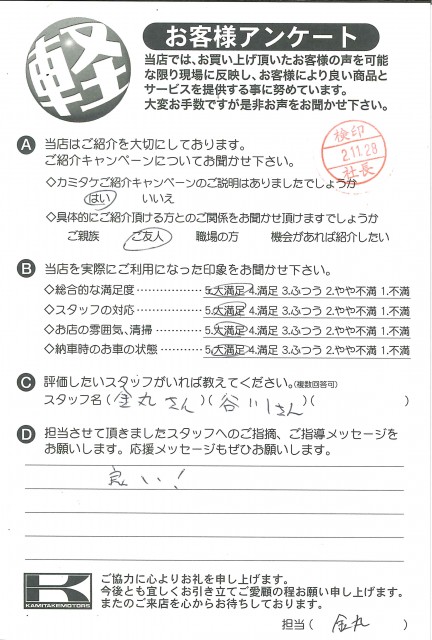 軽
お客様アンケート
当店では、お買い上げ頂いたお客様の声を可能
な限り現場に反映し、お客様により良い商品と
サービスを提供する事に努めています。
大変お手数ですが是非お声をお聞かせ下さい。
検印
2.11.28
社長
A 当店はご紹介を大切にしております。
ご紹介キャンペーンについてお聞かせ下さい。
◇カミタケご紹介キャンペーンのご説明はありましたでしょうか
はい いいえ
◇具体的にご紹介頂ける方とのご関係をお聞かせ頂けますでしょうか
ご親族 ご友人 職場の方 機会があれば紹介したい
B 当店を実際にご利用になった印象をお聞かせ下さい。
◇総合的な満足度 ……………… 5.大満足 4.満足 3.ふつう 2.やや不満 1.不満
◇スタッフの対応 ……………… 5.大満足 4.満足 3.ふつう 2.やや不満 1.不満
◇お店の雰囲気、清掃 ………… 5.大満足 4.満足 3.ふつう 2.やや不満 1.不満
◇納車時のお車の状態 ………… 5.大満足 4.満足 3.ふつう 2.やや不満 1.不満
C 評価したいスタッフがいれば教えてください。(複数回答可)
スタッフ名(金丸さん)(谷川さん)( )
D 担当させて頂きましたスタッフへのご指摘、ご指導メッセージを
お願いします。応援メッセージもぜひお願いします。
良い!
K
KAMITAKEMOTORS
ご協力に心よりお礼を申し上げます。
今後とも宜しくお引き立てご愛顧の程お願い申し上げます。
またのご来店を心からお待ちしております。
担当( 金丸 )